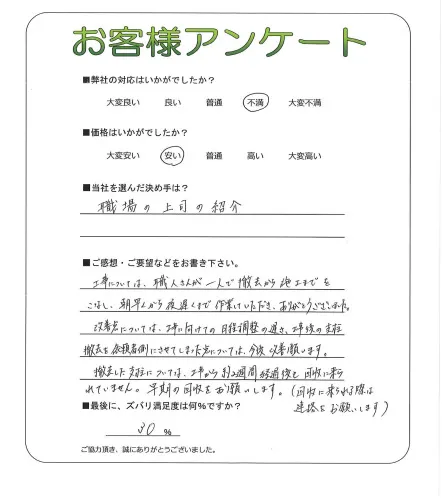 お客様アンケート
■弊社の対応はいかがでしたか?
大変良い 良い 普通 不満 大変不満
■価格はいかがでしたか?
大変安い 安い 普通 高い 大変高い
■当社を選んだ決め手は?
職場の上司の紹介
■ご感想・ご要望などをお書き下さい。
工事については、職人さんが一人で撤去から施工までを
こなし、朝早くから夜遅くまで作業いただき、ありがとうございました。
改善点については、工事に向けての日程調整の遅さ、工事後の支柱
撤去を依頼者側にさせてしまった点については、今後改善願います。
撤去した支柱については、工事から約2週間経過後も回収に来ら
れていません。早期の回収をお願いします。(回収に来られる際は
連絡をお願いします)
■最後に、ズバリ満足度は何%ですか?
30 %
ご協力頂き、誠にありがとうございました。